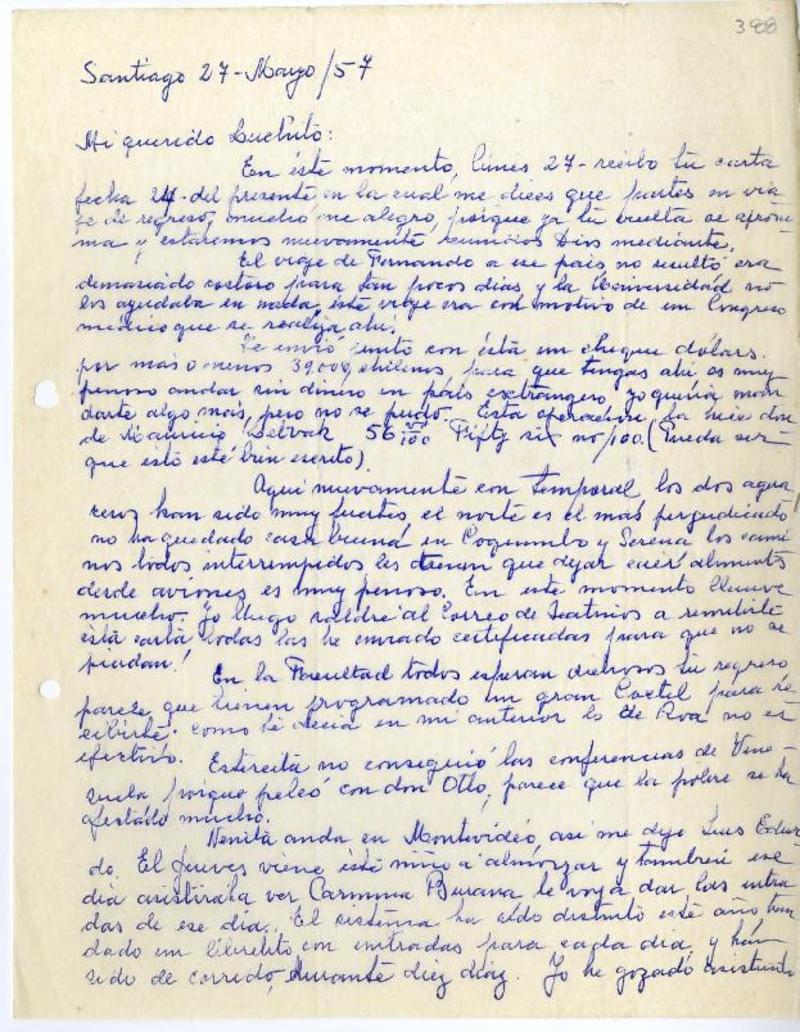 388
Santiago 27-Mayo/57
Mi querido Luchito:
En éste momento, lunes 27- recibo tu carta
fecha 24- del presente en la cual me dices que partes en via
je de regreso, mucho me alegro, porque ya tu vuelta se aproxi
ma y estaremos nuevamente reunidos Dios mediante.
El viaje de Fernando a ese país no resultó era
demasiado costoso para tan pocos dias y la Universidad no
los ayudaba en nada, éste viaje era con motivo de un Congreso
médico que se realiza ahí.
Te envió junto con ésta un cheque dólars.
por más o menos 39.000 chilenos, para que tengas ahí es muy
penoso andar sin dinero en país extrangero, yo quería man
darte algo más, pero no se pudo. Esta operación la hice don
de Mauricio 56 /100 Fifty six no/100. (Pueda ser
que ésto esté bien escrito).
Aquí nuevamente con temporal los dos agua
ceros han sido muy fuertes, el norte es el más perjudicado
no ha quedado casa buena en Coquimbo y Serena los cami
nos todos interrumpidos les tienen que dejar caér alimentos
desde aviones es muy penoso. En este momento llueve
mucho. Yo luego saldré al Correo de Teatinos a remitirte
ésta carta todas las he enviado certificadas para que no se
pierdan!
En la Facultad todos esperan dichosos tu regreso
parece que tienen programado un gran Coctel para re
cibirte. como te decia en mi anterior lo de Roa no es
efectivo.
Estercita no consiguió las conferencias de Vene-
zuela porque peleó con don Otto, parece que la pobre se ha
afectado mucho.
Nenita anda en Montevideo, así me dijo Luis Eduar
do. El jueves viene éste niño a almorzar y también ese
día asistirá a ver Carmina Burana le voy a dar las entra
das de ese día. El sistema ha sido distinto este año, han
dado un libretito con entradas para cada día, y han
sido de corrido, durante diez diaz. Yo he gozado asistiendo